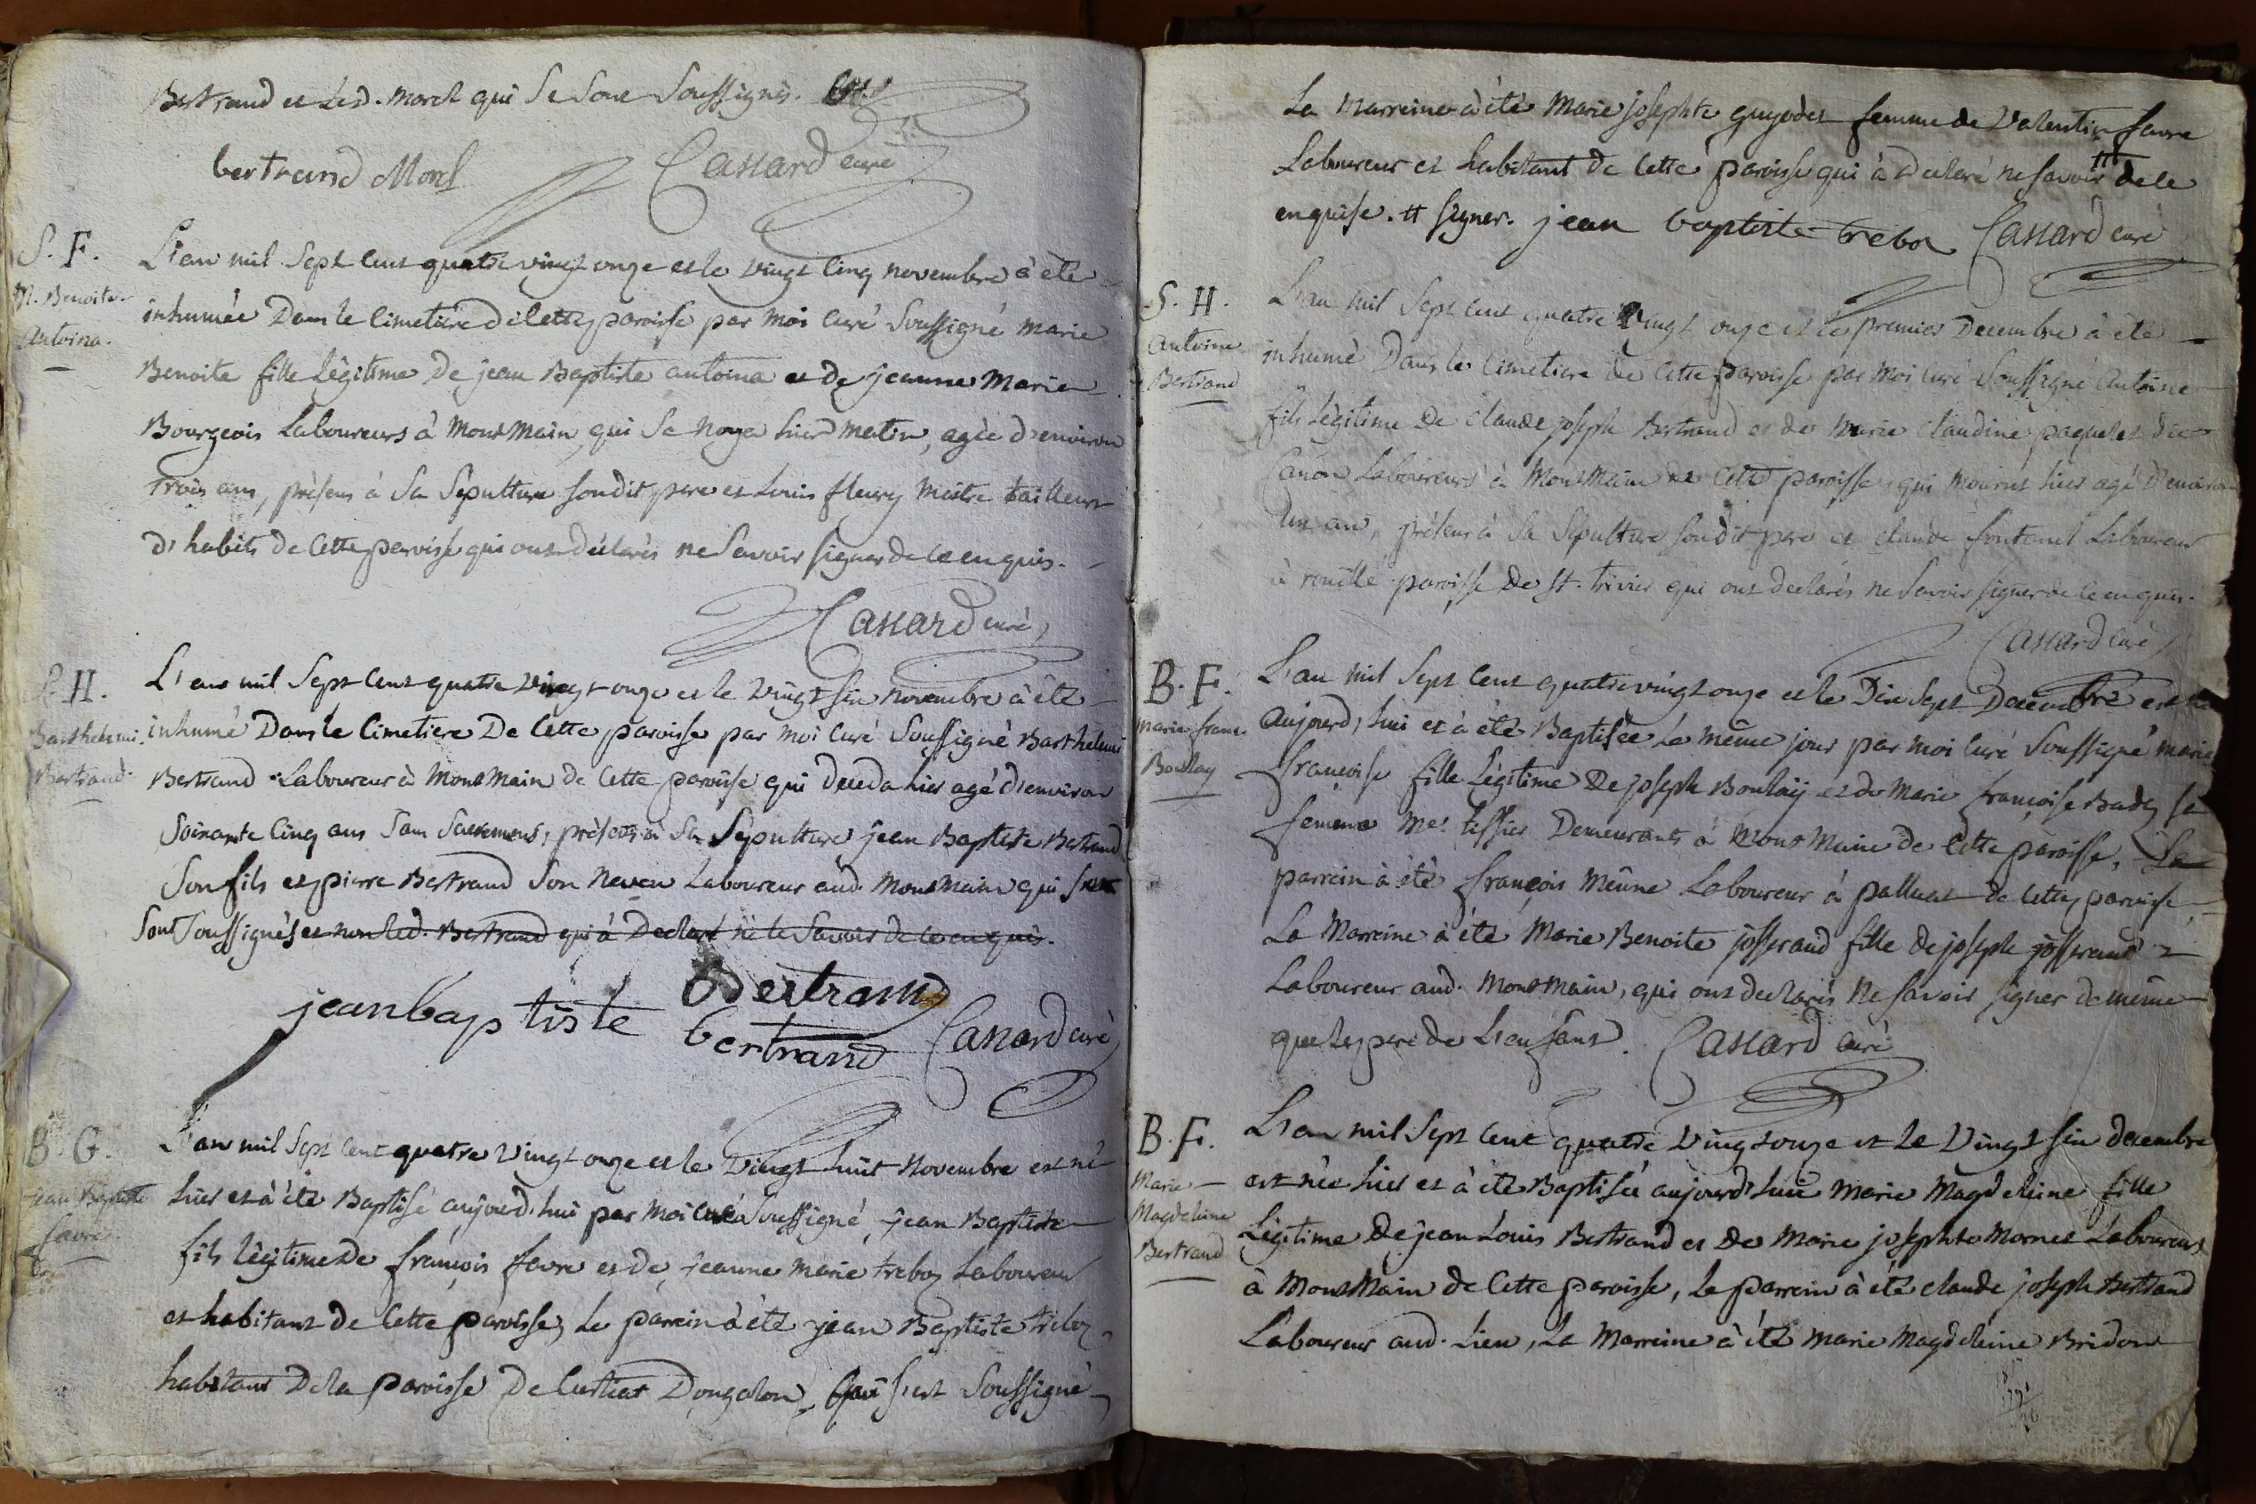 Bertrand et Led. morel qui se sont soussignés.
bertrand Morel Cassard curé
S. F.
M. Benoite
antoina.
L'an mil sept cent quatre vingt onze et le vingt cinq novembre à été
inhumée Dans le Cimetiere de Cette paroisse par moi Curé soussigné marie
Benoite fille légitime De jean Baptiste antoina et de jeanne Marie
Bourgeois Laboureurs à MontMain, qui se noya hier matin, agée d'environ
trois ans, présens à sa sépulture sondit pere et Louis fleury Maitre tailleur
d'habits de Cette paroisse qui ont déclarés ne savoir signer de ce enquis.
Cassard curé
S. H.
Barthelemi
Bertrand.
L'an mil sept cent quatre vingt onze et le vingt six novembre à été
inhumé Dans le Cimetiere De Cette paroisse par moi Curé soussigné Barthelemi
Bertrand Laboureur à MontMain de Cette paroisse qui deceda hier agé d'environ
soixante cinq ans sans sacremens, présens à sa sepulture jean Baptiste Bertrand
son fils et pierre Bertrand son neveu Laboureur aud. MontMain qui se
sont soussignés et non led. Bertrand qui à Declaré ne le savoir de ce enquis.
jean baptiste Bertrand
bertrand Cassard curé
B. G.
jean Baptiste
favre.
L'an mil sept cent quatre vingt onze et le vingt huit novembre est né
hier et à été Baptisé aujourd'hui par moi curé soussigné jean Baptiste
fils légitime De françois favre et de jeanne marie treboz Laboureur
et habitant de Cette paroisse, Le parrein à été jean Baptiste treboz
habitant De la paroisse De Curtiat Dongalon, qui s'est soussigné
La Marreine à été Marie josephte guyodet femme de Valentin favre
Laboureur et habitant de Cette paroisse qui à declaré ne savoir # de ce
enquise. # signer. jean baptiste treboz Cassard curé
S. H.
antoine
Bertrand
L'an mil sept cent quatre vingt onze et le premier Decembre à été
inhumé Dans le Cimetiere de Cette paroisse par moi curé soussigné antoine
fils légitime De Claude joseph Bertrand et de Marie Claudine paquelet dit
Canon Laboureurs à MontMain de Cette paroisse, qui mourut hier agé d'environ
un an, présens à sa sépulture sondit pere et Claude fontanel Laboureur
à rouille paroisse De St. trivier qui ont declarés ne savoir signer de ce enquis.
Cassard curé
B. F.
marie franc.
Boulay
L'an mil sept cent quatre vingt onze et le Dix sept Decembre est née
aujourd'hui et à été Baptisée le même jour par moi curé soussigné marie
françoise fille légitime De joseph Boulay et de Marie françoise Badey sa
femme Me. tissier Demeurants à MontMain de Cette paroisse, Le
parrein à été françois Meûne Laboureur à palluat de Cette paroisse
La Marreine à été Marie Benoite josserand fille de joseph josserand
Laboureur aud. MontMain, qui ont declarés ne savoir signer de même
que le pere de L'enfant. Cassard curé
B. F.
Marie
Magdeleine
Bertrand
L'an mil sept cent quatre vingt onze et le vingt six decembre
est née hier et à été Baptisée aujourd'hui marie Magdeleine fille
Légitime De jean Louis Bertrand et De Marie josephte Mornet Laboureurs
à MontMain de Cette paroisse, Le parrein à été claude joseph Bertrand
Laboureur aud. Lieu, La Marreine à été Marie Magdeleine Bridon